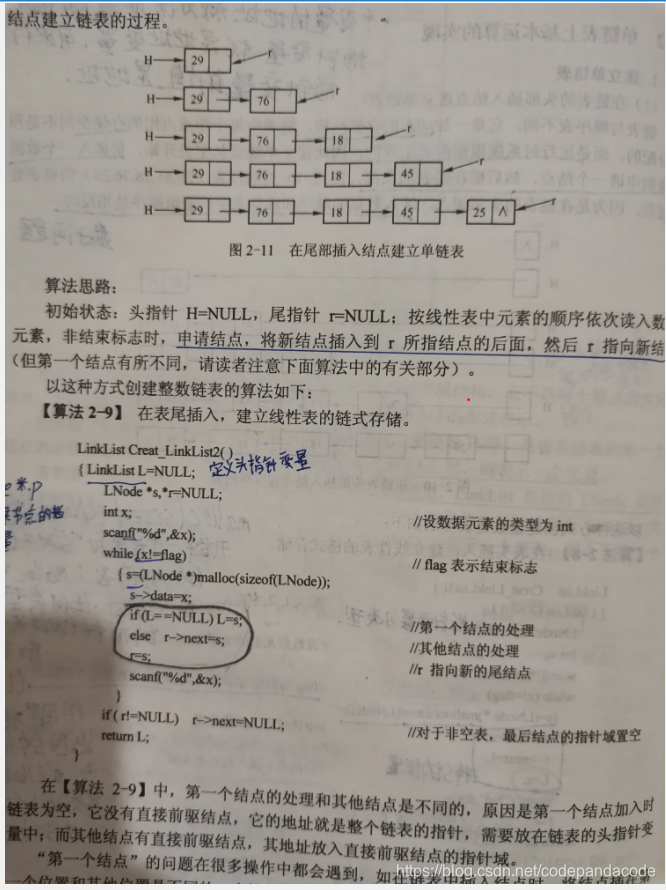 结点建立链表的过程。
H 29 r
H 29 76 r
H 29 76 18 r
H 29 76 18 45 r
H 29 76 18 45 25 ∧
图 2-11 在尾部插入结点建立单链表
算法思路：
初始状态：头指针 H=NULL，尾指针 r=NULL；按线性表中元素的顺序依次读入数
元素，非结束标志时，申请结点，将新结点插入到 r 所指结点的后面，然后 r 指向新结
（但第一个结点有所不同，请读者注意下面算法中的有关部分）。
以这种方式创建整数链表的算法如下：
【算法 2-9】 在表尾插入，建立线性表的链式存储。
LinkList Creat_LinkList2( )
{ LinkList L=NULL; 定义头指针变量
LNode *s,*r=NULL;
int x; //设数据元素的类型为 int
scanf("%d",&x);
while (x!=flag) // flag 表示结束标志
{ s=(LNode *)malloc(sizeof(LNode));
s->data=x;
if (L==NULL) L=s; //第一个结点的处理
else r->next=s; //其他结点的处理
r=s; //r 指向新的尾结点
scanf("%d",&x);
}
if ( r!=NULL) r->next=NULL; //对于非空表，最后结点的指针域置空
return L;
}
在【算法 2-9】中，第一个结点的处理和其他结点是不同的，原因是第一个结点加入时
链表为空，它没有直接前驱结点，它的地址就是整个链表的指针，需要放在链表的头指针变
量中；而其他结点有直接前驱结点，其地址放入直接前驱结点的指针域。
“第一个结点”的问题在很多操作中都会遇到，如在链表中插入结点时，将结点插在第
https://blog.csdn.net/codepandacode